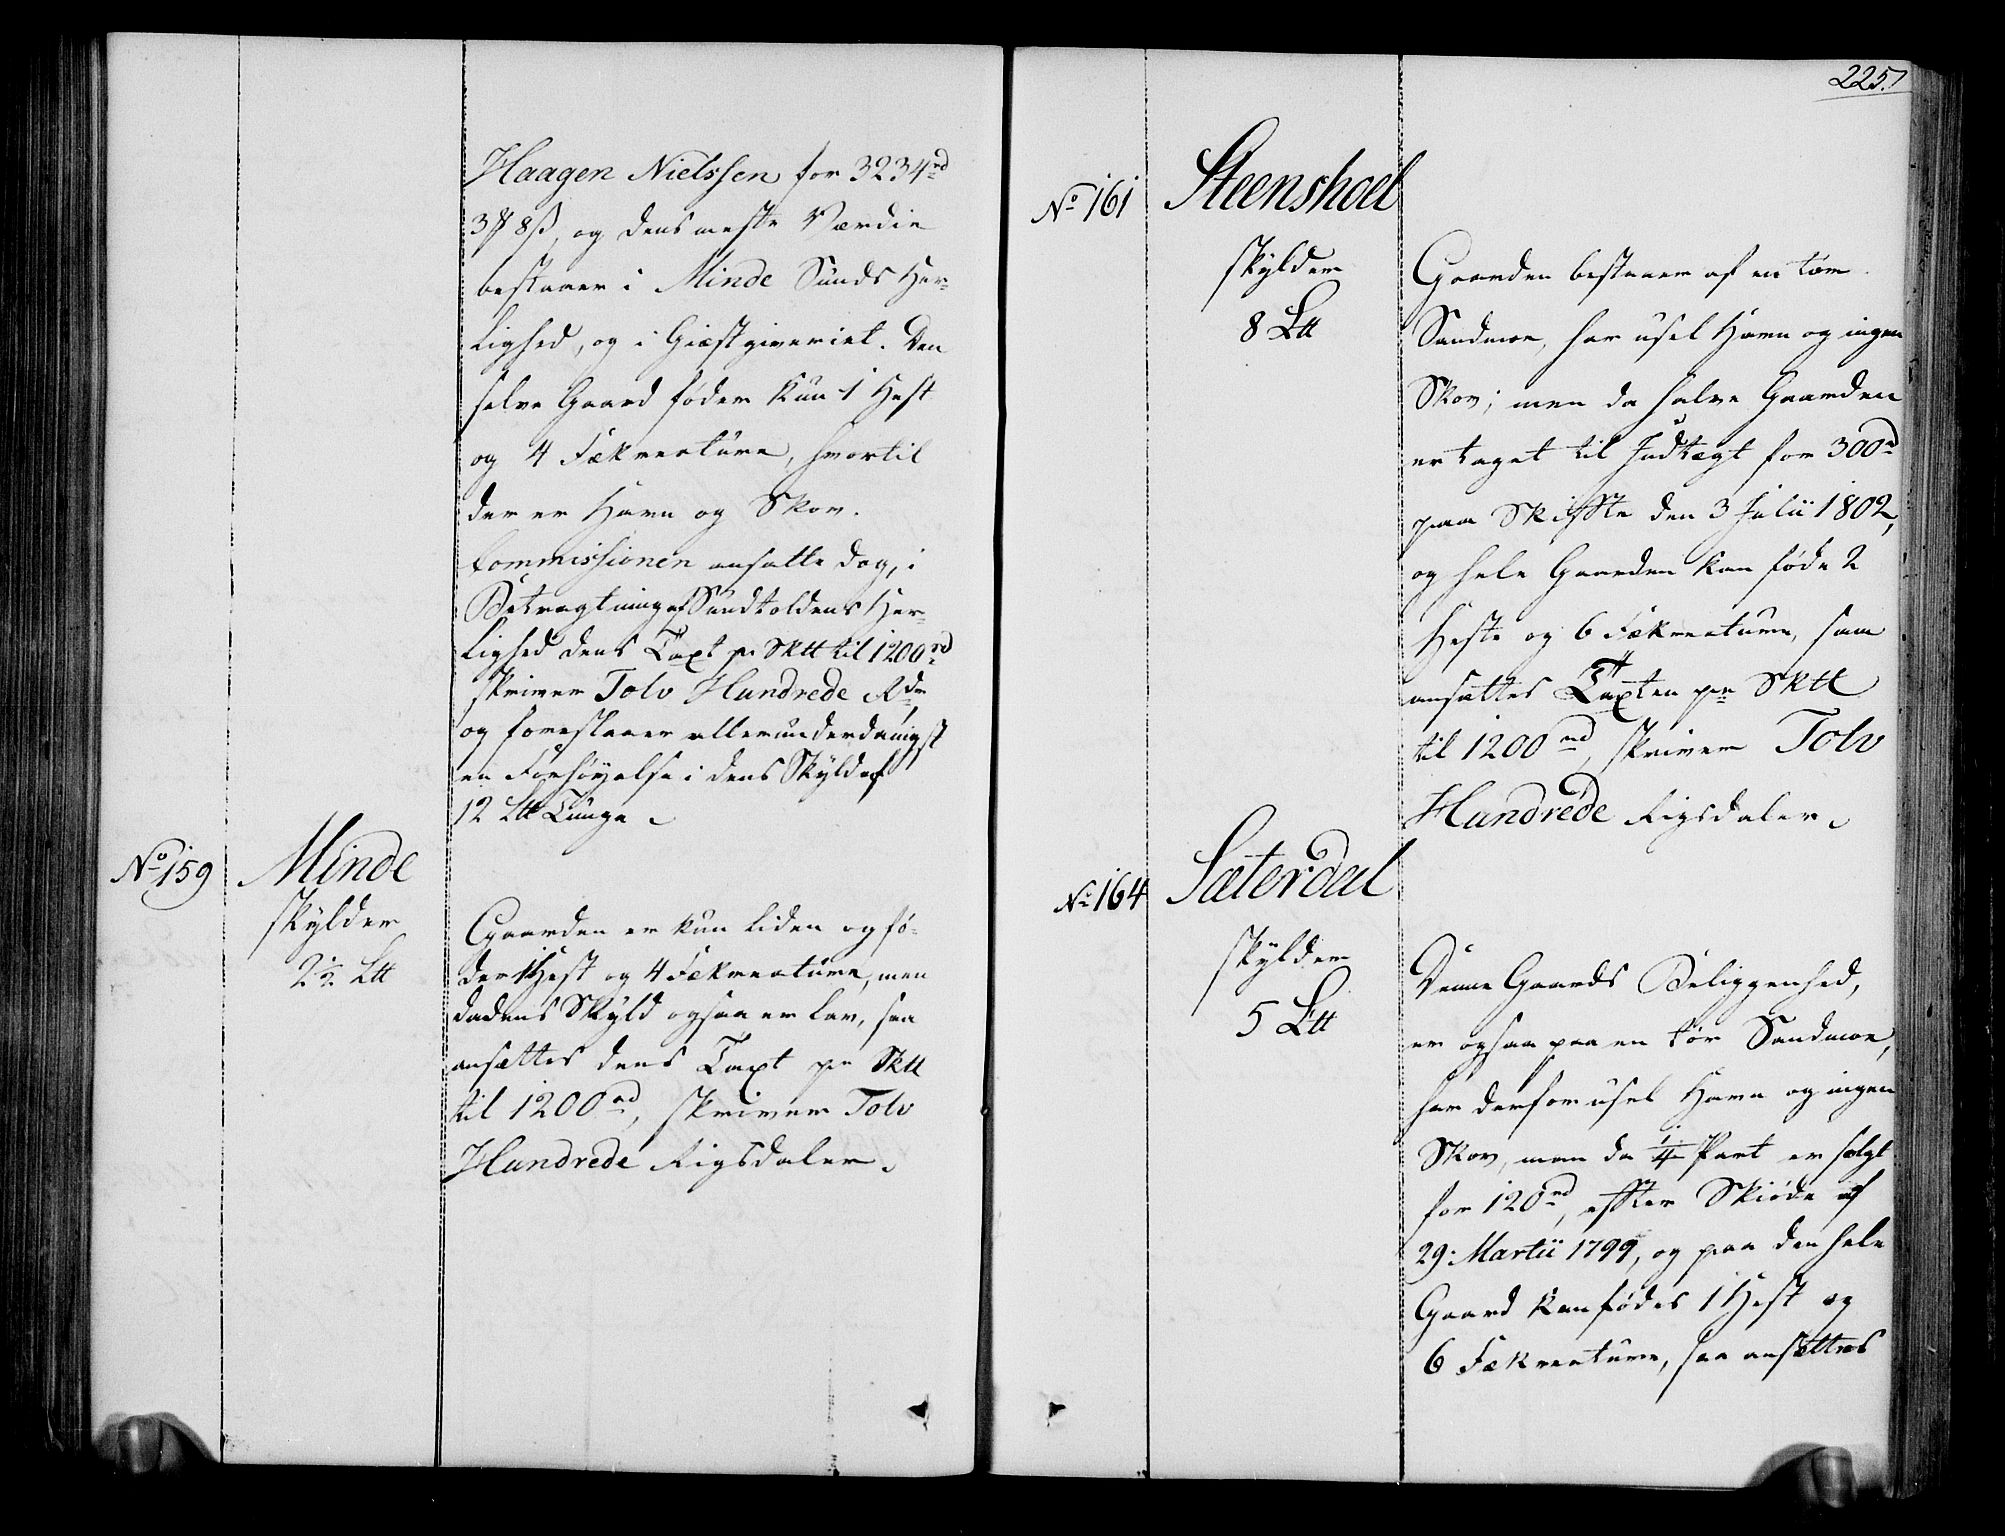 Haagen Nielssen for 3234rd
3 8ß, og dens meste Værdie
bestaaer i Minde Sunds Her-
lighed, og i Giæstgiveriet. Den
selve Gaard føder kun 1 Hest
og 4 Fækreature, hvortil
der er Havn og Skov.
Commissionen ansatte dog, i
Betragtning af Sundtoldens Her-
lighed dens Taxt pr Sktt til 1200rd
skriver Tolv Hundrede Rdr
og foreslaaer allerunderdanigst
en Forhøyelse i dens Skyld af
12 Ltt Tunge
No 159
Minde
skylder
2½ Ltt
Gaarden er kun liden og fø-
der 1 Hest og 4 Fækreature, men
da dens Skyld ogsaa er lav, saa
ansættes dens Taxt pr Sktt
til 1200rd, skriver Tolv
Hundrede Rigsdaler.
225.
No 161
Steenshoel
skylder
8 Ltt
Gaarden bestaaer af en tør
Sandmoe, har usel Havn og ingen
Skov; men da halve Gaarden
er taget til Indtægt for 300rd
paa Skiffte den 3 Julii 1802,
og hele Gaarden kan føde 2
Heste og 6 Fækreature, saa
ansættes Taxten pr Sktt
til 1200rd, skriver Tolv
Hundrede Rigsdaler.
No 164
Sæterdal
skylder
5 Ltt
Denne Gaards Beliggenhed,
er ogsaa paa en tør Sandmoe,
har derfor usel Havn og ingen
Skov, men da 1/4 Part er solgt
for 120rd, effter Skiøde af
29. Martii 1799, og paa den hele
Gaard kan fødes 1 Hest og
6 Fækreature, saa ansættes